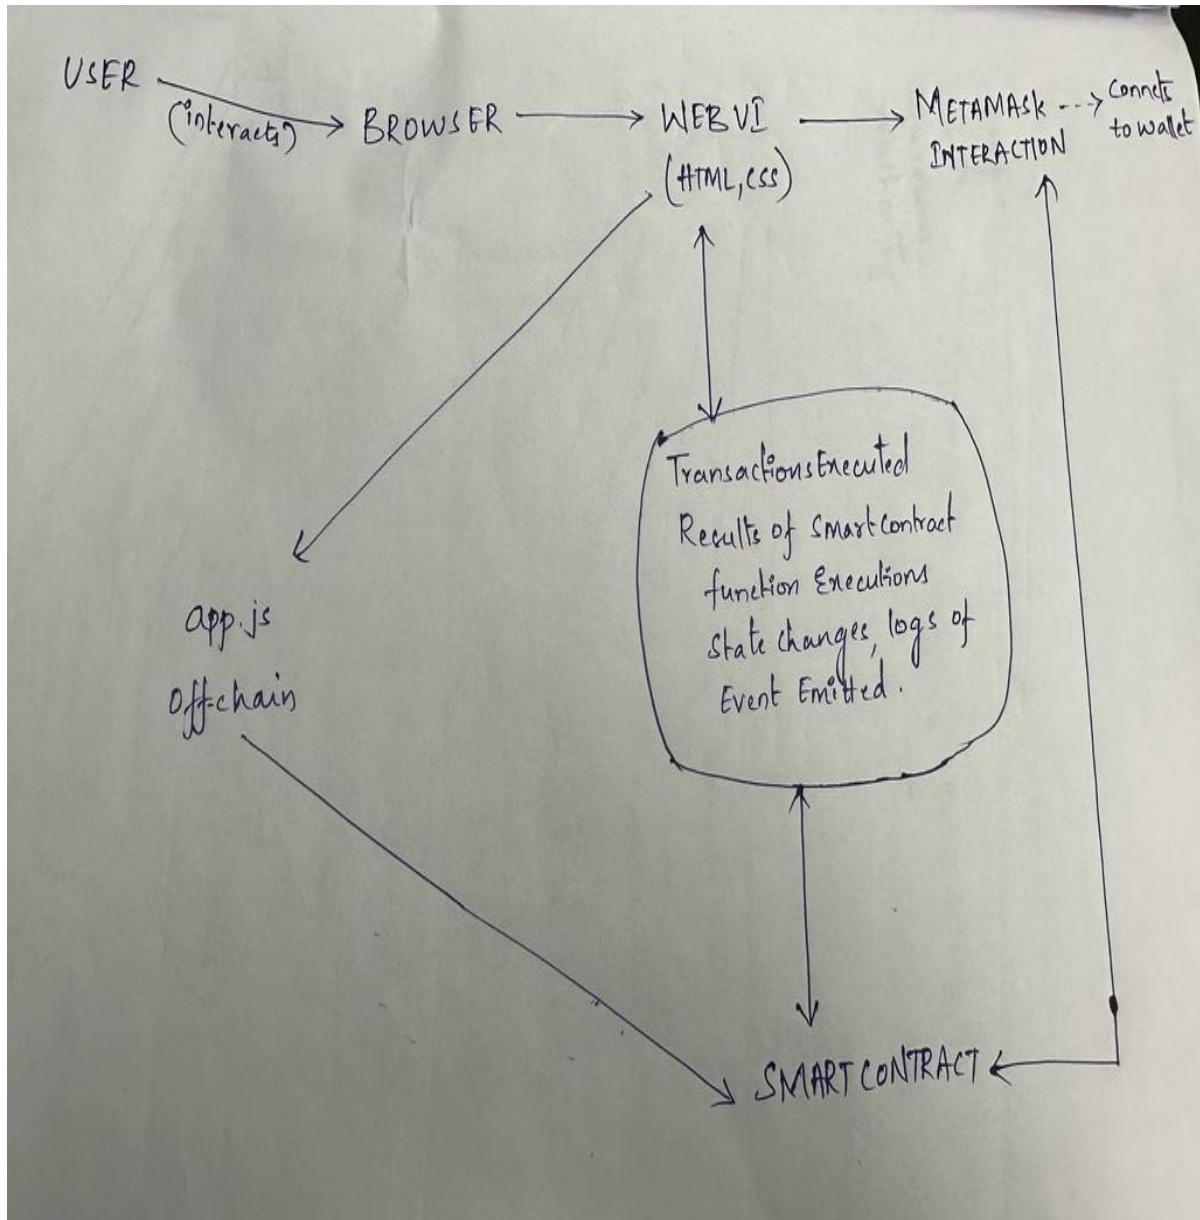 USER
(interacts)
BROWSER
WEB UI
(HTML, CSS)
METAMASK
INTERACTION
Connets
to wallet
Transactions Executed
Results of Smart Contract
function Executions
State changes, logs of
Event Emitted.
app.js
Off-chain
SMART CONTRACT